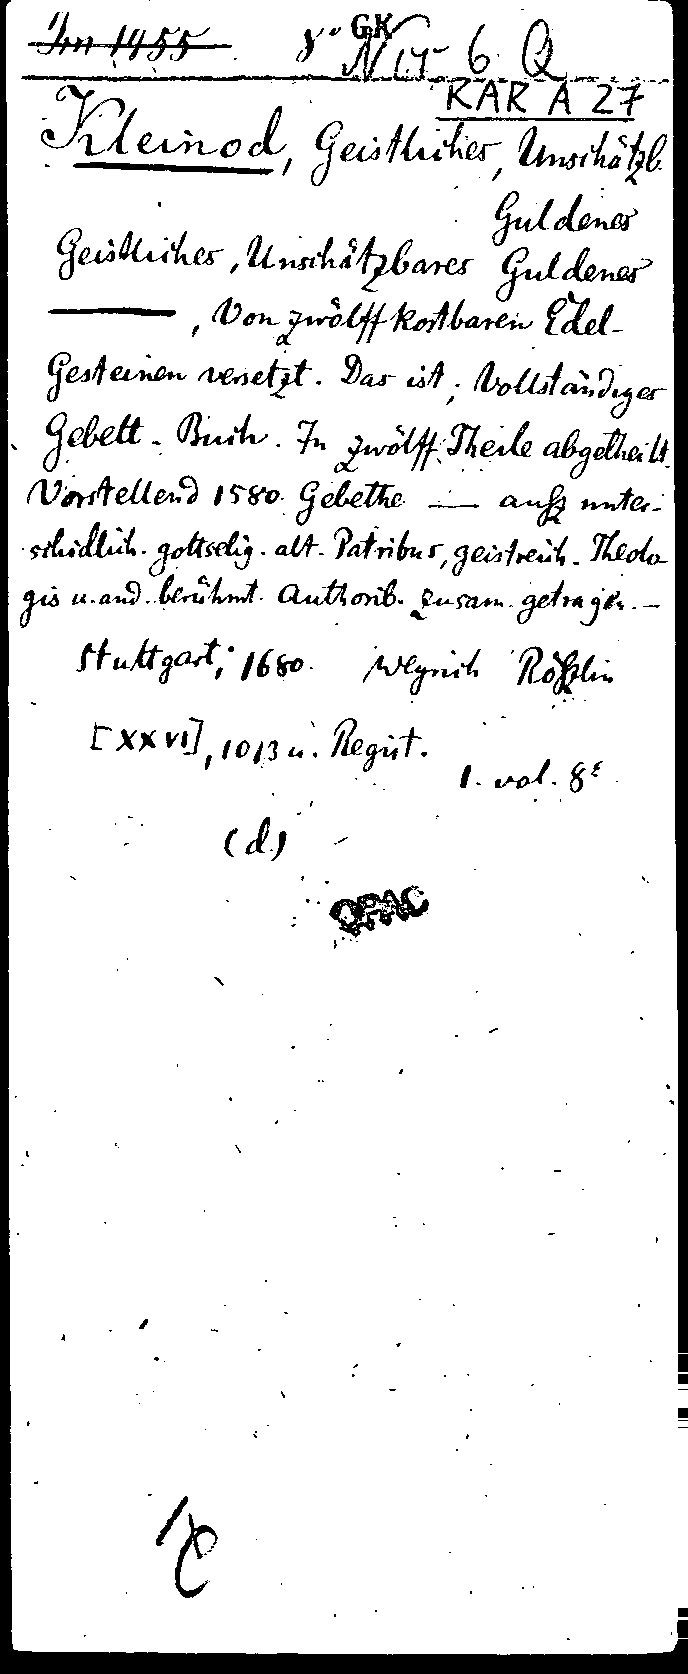 Im 1955 8° GK N 15 6 Q
KAR A 27
Kleinod, Geistlicher, Unschätzb.
Guldenes
Geistlicher, Unschätzbares Guldenes
——, Von zwölff kostbaren Edel-
Gesteinen versetzt. Das ist, Vollständiger
Gebett-Buch. In zwölff Theile abgetheilt.
Vorstellend 1580. Gebethe — auſz unter-
schidlich. gottselig. alt. Patribus, geistreich. Theolo-
gis u. and. berühmt. Authorib. zusam. getragen. —
Stuttgart, 1680. Weyrich Röſzlin
[XXVI], 1013 u. Regist.
1. vol. 8°
(d)
OPAC